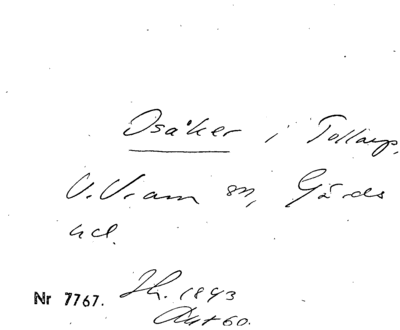 Osåker i Tollarp,
V. Vram sn, Gärds
hd.
Nr 7767. Lh. 1843
Akt 60.